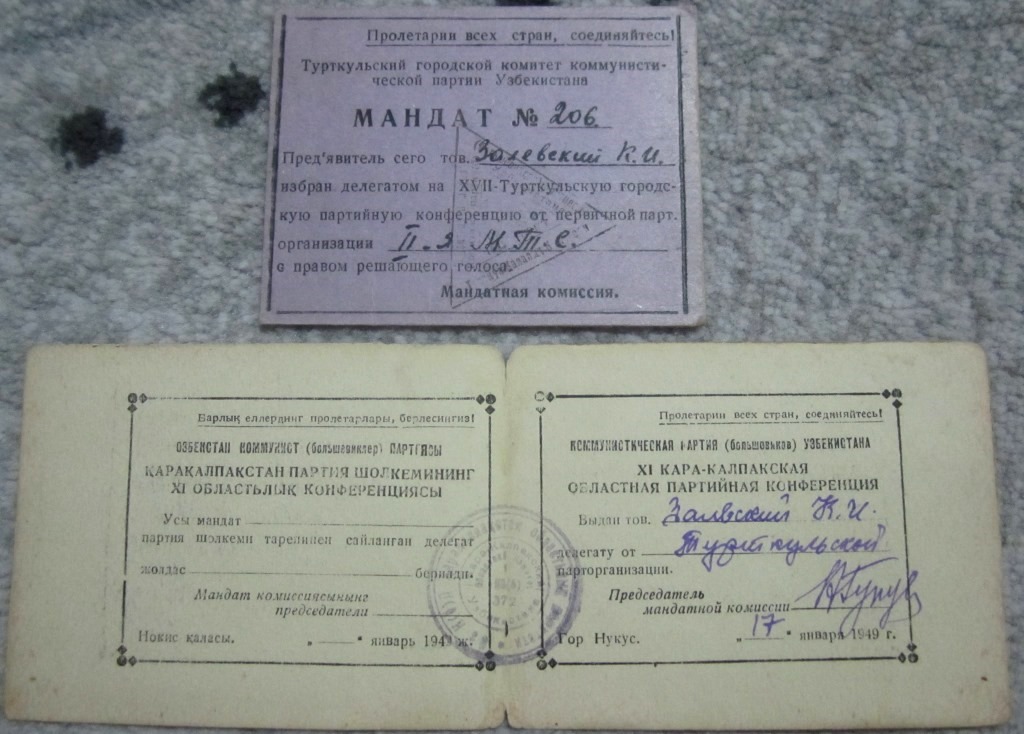 Пролетарии всех стран, соединяйтесь!
Турткульский городской комитет коммунисти-
ческой партии Узбекистана
МАНДАТ № 206
Пред'явитель сего тов. Залевский К. И.
избран делегатом на XVII-Турткульскую городс-
кую партийную конференцию от первичной парт.
организации II-я М.Т.С.
с правом решающего голоса.
Мандатная комиссия.
Барлық еллердинг пролетарлары, берлесингиз!
ОЗБЕКСТАН КОММУНИСТ (большевиклер) ПАРТИЯСЫ
ҚАРАҚАЛПАҚСТАН ПАРТИЯ ШОЛКЕМИНИНГ
XI ОБЛАСТЬЛЫҚ КОНФЕРЕНЦИЯСЫ
Усы мандат
партия шолкеми тарепинен сайланган делегат
жолдас бериледи.
Мандат комиссиясынынг
председатели
Нокис қаласы. „ " январь 194 ж.
Пролетарии всех стран, соединяйтесь!
КОММУНИСТИЧЕСКАЯ ПАРТИЯ (большовиков) УЗБЕКИСТАНА
XI КАРА-КАЛПАКСКАЯ
ОБЛАСТНАЯ ПАРТИЙНАЯ КОНФЕРЕНЦИЯ
Выдан тов. Залевский К. И.
делегату от Турткульской
парторганизации.
Председатель
мандатной комиссии
Гор Нукус. „ 17 " января 1949 г.